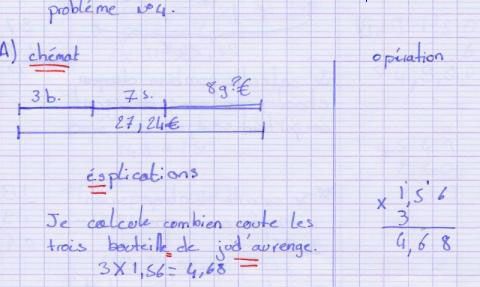 problème N°4.
A) chémat
opération
3 b. 7 s. 8g?€
27,24€
ésplications
Je calcule combien coute les
trois bouteille de jud'aurenge.
3 X 1,56 = 4,68
1,56
x 3
4,68